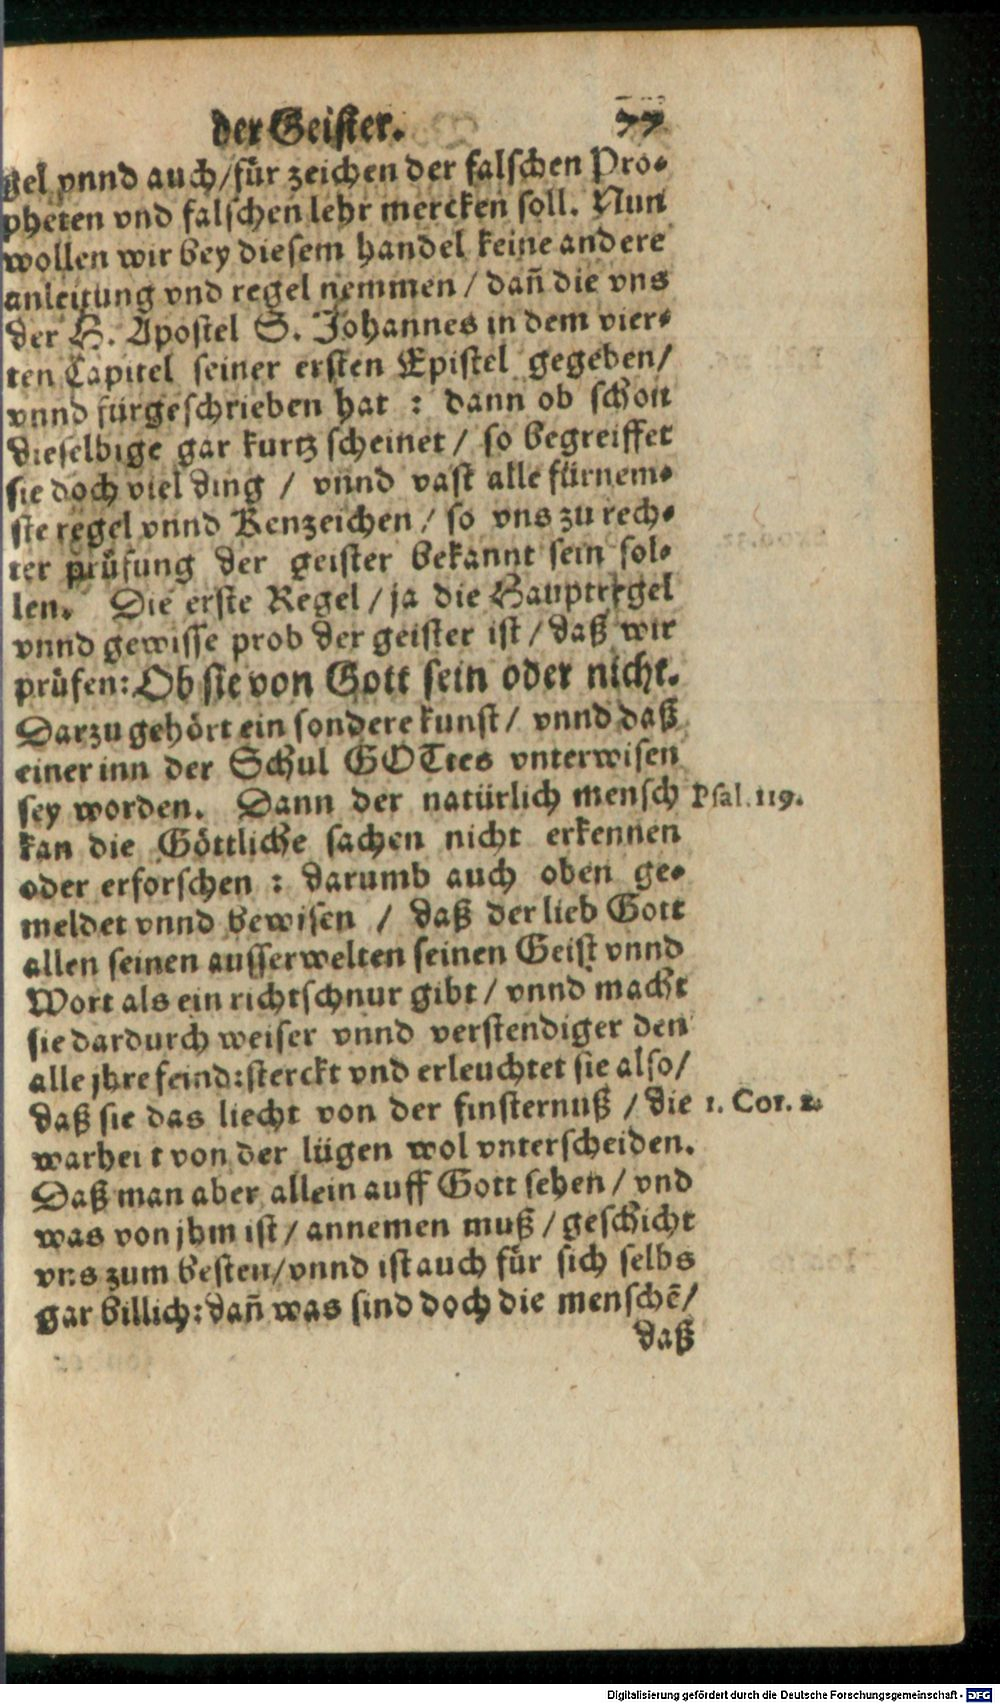 der Geister. 77
gel vnnd auch/für zeichen der falschen Pro-
pheten vnd falschen lehr mercken soll. Nun
wollen wir bey diesem handel keine andere
anleitung vnd regel nemmen / dañ die vns
der H. Apostel S. Johannes in dem vier-
ten Capitel seiner ersten Epistel gegeben/
vnnd fürgeschrieben hat : dann ob schon
dieselbige gar kurtz scheinet / so begreiffet
sie doch viel ding / vnnd vast alle fürnem-
ste regel vnnd Kenzeichen / so vns zu rech-
ter prüfung der geister bekannt sein sol-
len. Die erste Regel / ja die Hauptregel
vnnd gewisse prob der geister ist / daß wir
prüfen: Ob sie von Gott sein oder nicht.
Darzu gehört ein sondere kunst / vnnd daß
einer inn der Schul GOTtes vnterwisen
sey worden. Dann der natürlich mensch Psal. 119.
kan die Göttliche sachen nicht erkennen
oder erforschen : darumb auch oben ge-
meldet vnnd bewisen / daß der lieb Gott
allen seinen ausserwelten seinen Geist vnnd
Wort als ein richtschnur gibt / vnnd macht
sie dardurch weiser vnnd verstendiger den
alle jhre feind: sterckt vnd erleuchtet sie also/
daß sie das liecht von der finsternuß / die 1. Cor. 2.
warheit von der lügen wol vnterscheiden.
Daß man aber allein auff Gott sehen / vnd
was von jhm ist / annemen muß / geschicht
vns zum besten/vnnd ist auch für sich selbs
gar billich: dañ was sind doch die menschẽ/
daß
Digitalisierung gefördert durch die Deutsche Forschungsgemeinschaft - DFG